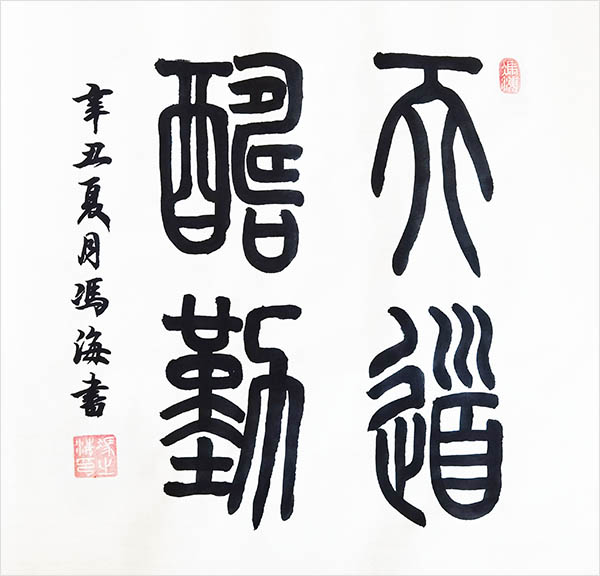 天道
酬勤
辛丑夏月馮海書